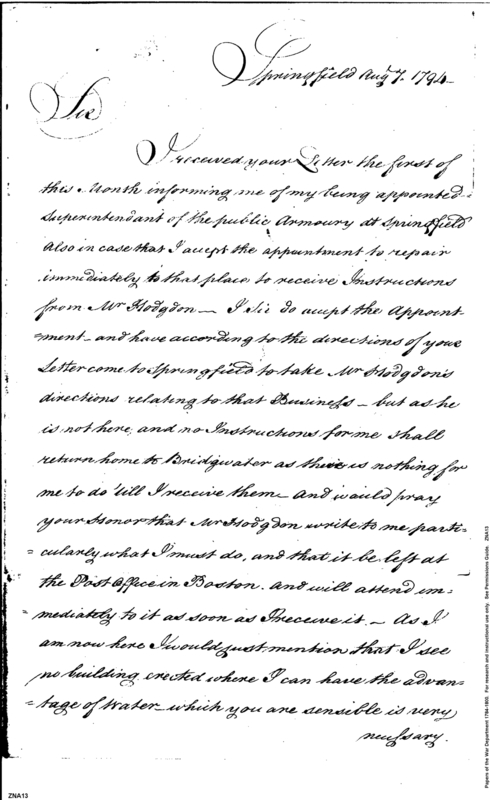 Springfield Augt 7. 1794
Sir
I received your Letter the first of
this Month informing me of my being appointed
Superintendant of the public Armoury at Springfield
Also in case that I accept the appointment to repair
immediately to that place to receive Instructions
from Mr Hodgdon — I Sir do accept the Appoint-
=ment — and have according to the directions of your
Letter come to Springfield to take Mr Hodgdon's
directions relating to that Business — but as he
is not here, and no Instructions for me shall
return home to Bridgwator as there is nothing for
me to do 'till I receive them — And would pray
your Honor that Mr Hodgdon write to me parti-
=cularly what I must do, and that it be left at
the Post Office in Boston. and will attend im-
=mediately to it as soon as I receive it — As I
am now here I would just mention that I see
no building erected where I can have the advan-
=tage of Water — which you are sensible is very
necessary.
ZNA13
Papers of the War Department 1784-1800. For research and instructional use only. See Permissions Guide. ZNA13